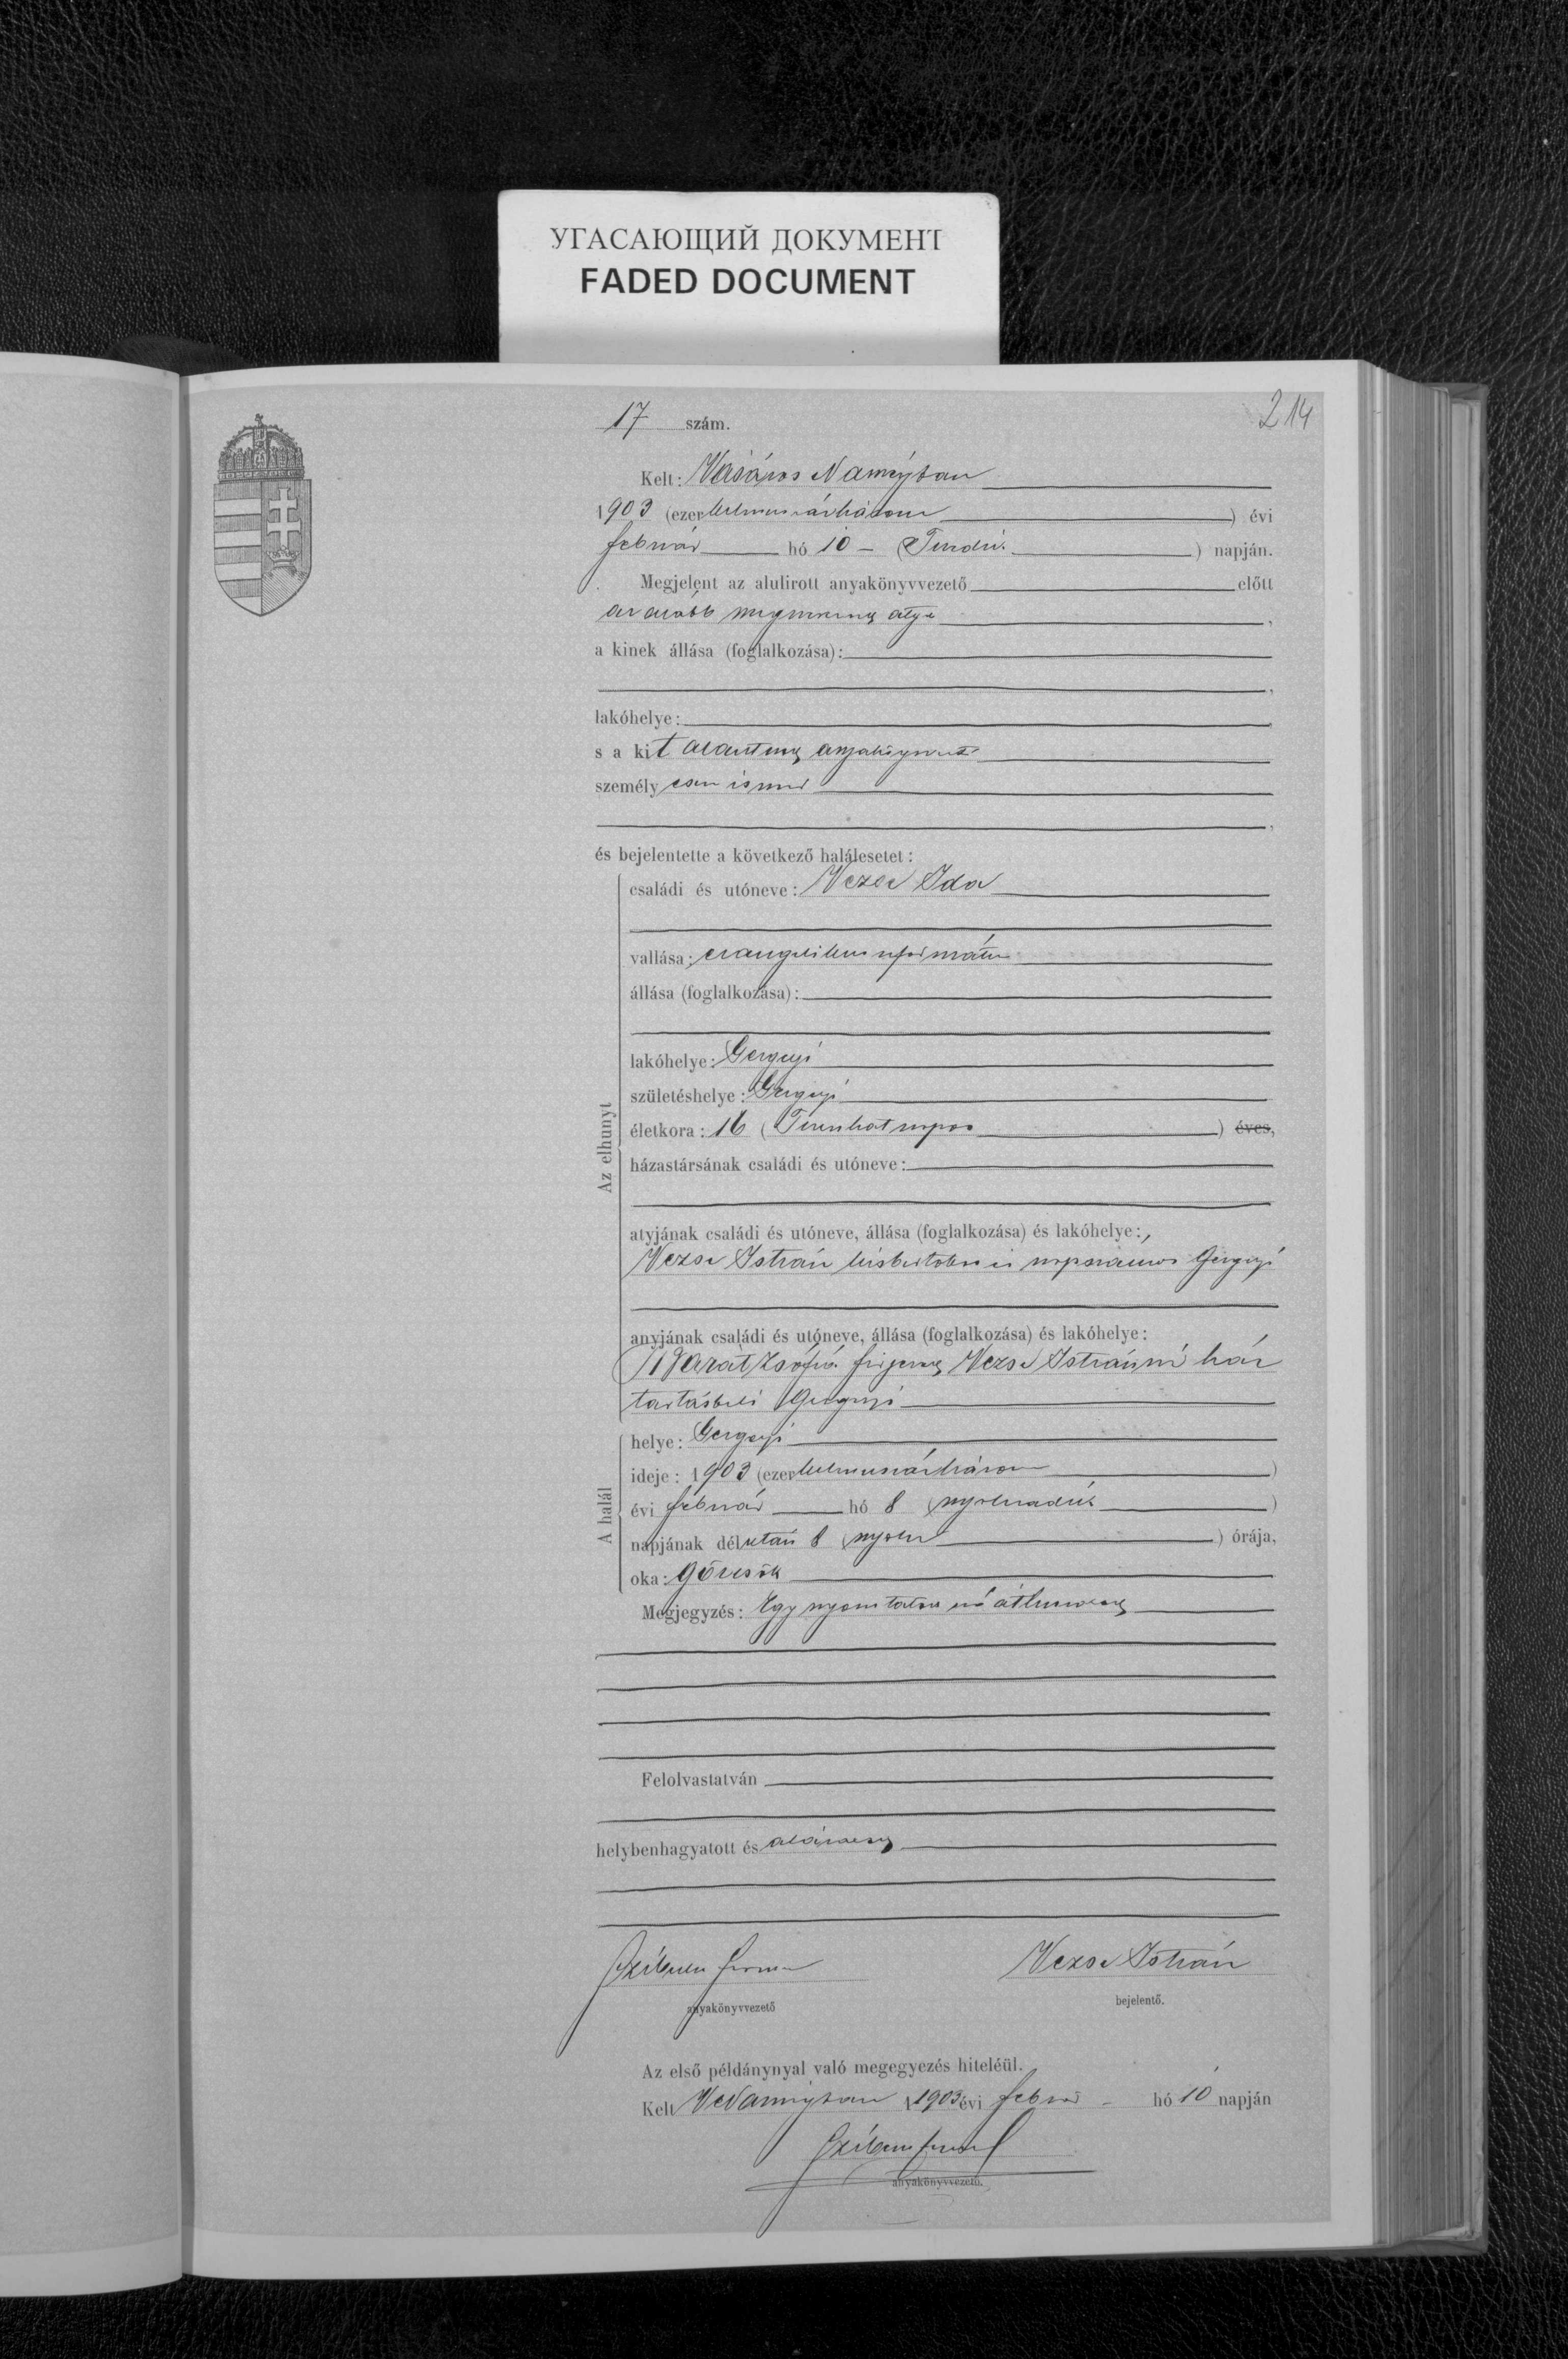 УГАСАЮЩИЙ ДОКУМЕНТ
FADED DOCUMENT
214
17 szám.
Kelt: Vásáros Naményban
1903 (ezerkilencszázhárom) évi
február hó 10 - (Tizedik) napján.
Megjelent az alulirott anyakönyvvezető előtt
az alább megnevezett atya,
a kinek állása (foglalkozása):
lakóhelye:
s a kit anyakönyvvezető
személyesen ismer
és bejelentette a következő halálesetet:
Az elhunyt
családi és utóneve: Vezse Ida
vallása: evangelikus református
állása (foglalkozása):
lakóhelye: Gergelyi
születéshelye: Gergelyi
életkora: 16 (Tizenhat napos) éves,
házastársának családi és utóneve:
atyjának családi és utóneve, állása (foglalkozása) és lakóhelye:
Vezse István kisbirtokos és napszámos Gergelyi
anyjának családi és utóneve, állása (foglalkozása) és lakóhelye:
Zsófia férjezett Vezse Istvánné ház
tartásbeli Gergelyi
A halál
helye: Gergelyi
ideje: 1903 (ezerkilencszázhárom)
évi február hó 8 (nyolczadik)
napjának délután 8 (nyolcz) órája,
oka: görcsök
Megjegyzés: Egy nyomtatott szó
Felolvastatván
helybenhagyatott és aláíratott
Vezse István
anyakönyvvezető
bejelentő.
Az első példánynyal való megegyezés hiteléül.
Kelt VNaményban 1903 évi február - hó 10 napján
anyakönyvvezető.